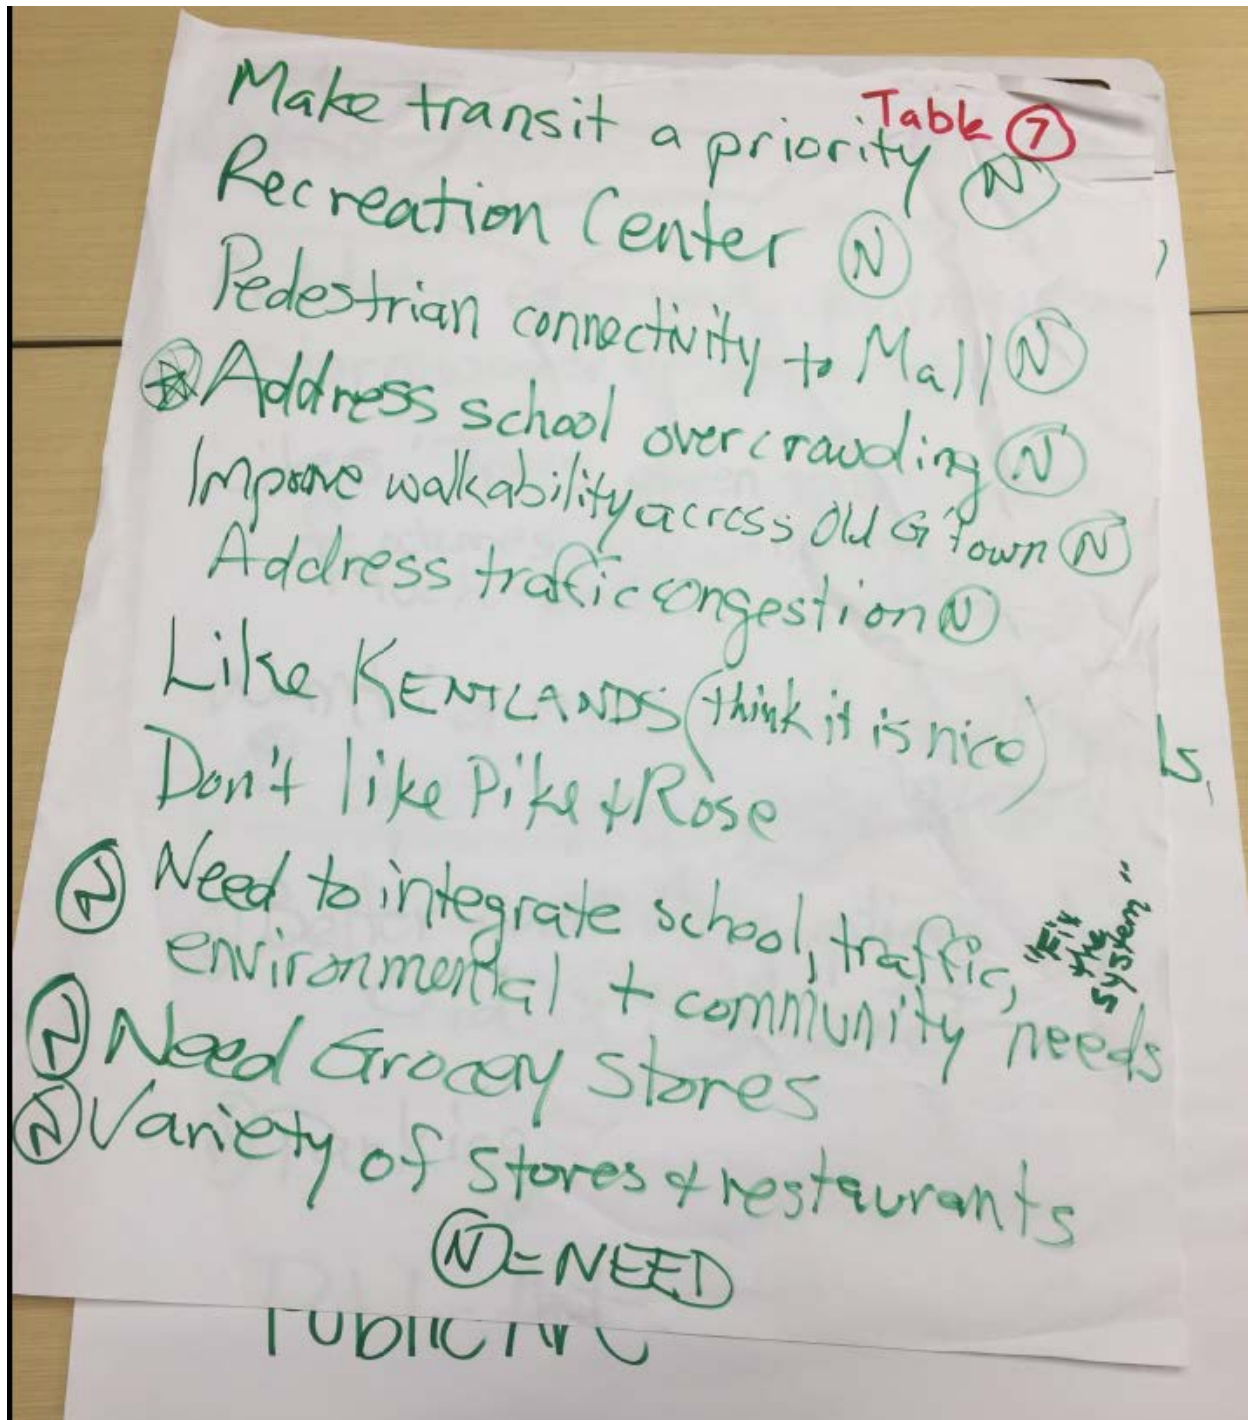 Table 7
Make transit a priority N
Recreation Center N
Pedestrian connectivity to Mall N
Address school overcrowding N
Improve walkability across Old G'town N
Address traffic congestion N
Like KENTLANDS (think it is nice)
Don't like Pike + Rose
N Need to integrate school, traffic,
environmental + community needs
"Fix
the
system"
N Need Grocery Stores
N Variety of Stores + restaurants
N = NEED
Public Art
ls,